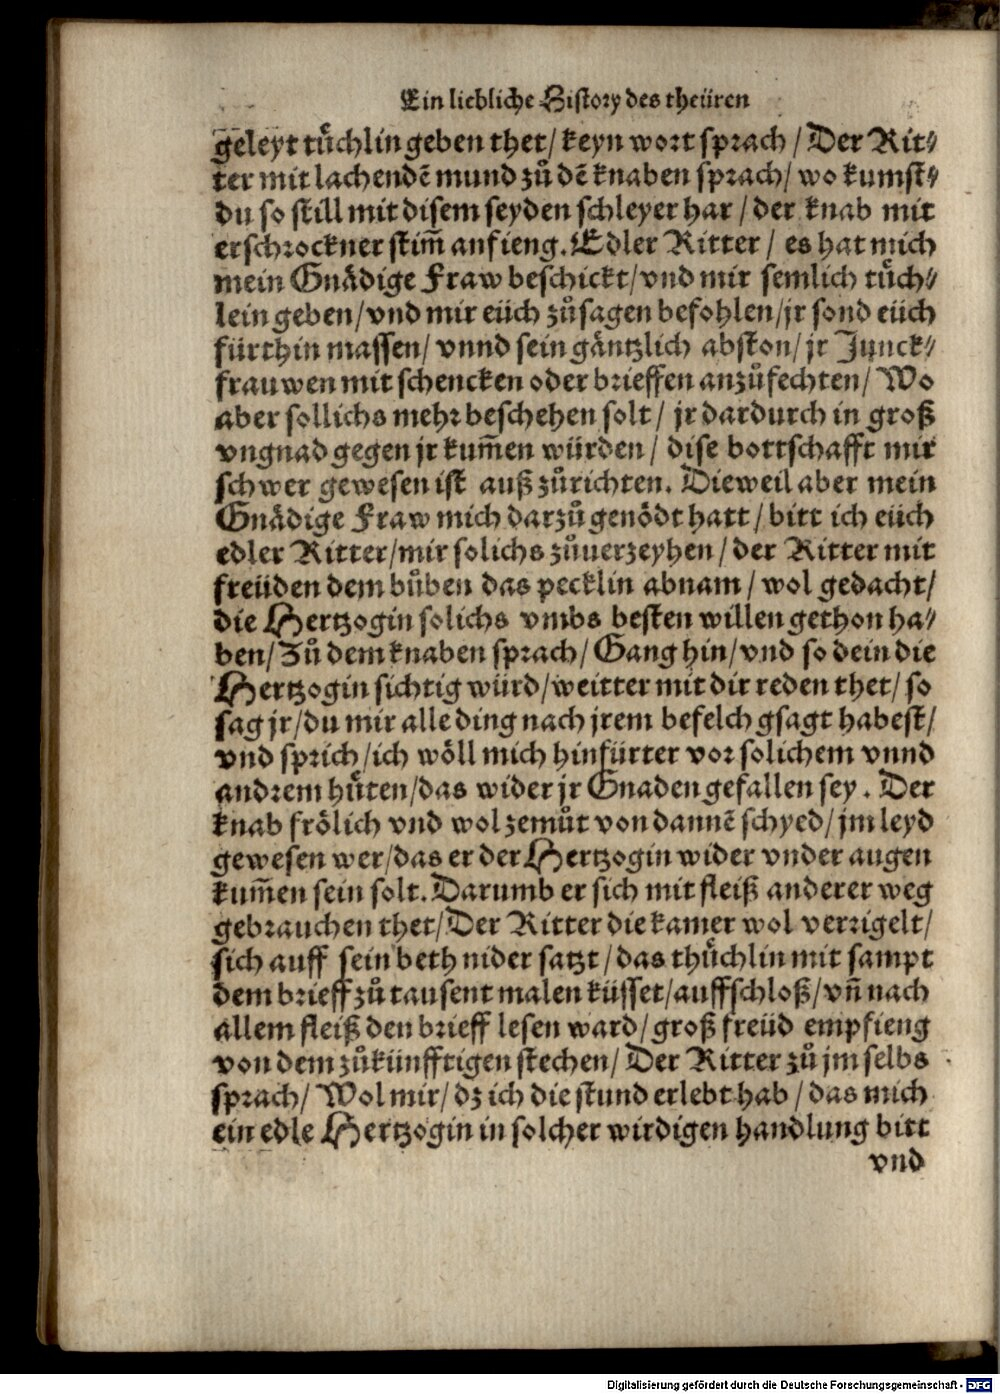 Ein liebliche History des theüren
geleyt tuͤchlin geben thet/ keyn wort sprach / Der Rit⸗
ter mit lachendẽ mund zuͦ dẽ knaben sprach/ wo kumst⸗
du so still mit disem seyden schleyer har / der knab mit
erschrockner stim̃ anfieng. Edler Ritter / es hat mich
mein Gnaͤdige Fraw beschickt/ vnd mir semlich tuͤch⸗
lein geben/ vnd mir eüch zuͦsagen befohlen/ jr sond eüch
fürthin massen/ vnnd sein gaͤntzlich abston/ jr Junck⸗
frauwen mit schencken oder brieffen anzuͦfechten/ Wo
aber sollichs mehr beschehen solt / jr dardurch in groß
vngnad gegen jr kum̃en würden / dise bottschafft mir
schwer gewesen ist auß zuͦrichten. Dieweil aber mein
Gnaͤdige Fraw mich darzuͦ genoͤdt hatt / bitt ich eüch
edler Ritter/ mir solichs zuͦuerzeyhen / der Ritter mit
freüden dem buͦben das pecklin abnam / wol gedacht/
die Hertzogin solichs vmbs besten willen gethon ha⸗
ben/ Zuͦ dem knaben sprach/ Gang hin/ vnd so dein die
Hertzogin sichtig würd/ weitter mit dir reden thet/ so
sag jr/ du mir alle ding nach jrem befelch gsagt habest/
vnd sprich/ ich woͤll mich hinfürter vor solichem vnnd
andrem huͤten/ das wider jr Gnaden gefallen sey. Der
knab froͤlich vnd wol zemuͦt von dannẽ schyed/ jm leyd
gewesen wer/ das er der Hertzogin wider vnder augen
kum̃en sein solt. Darumb er sich mit fleiß anderer weg
gebrauchen thet/ Der Ritter die kamer wol verrigelt/
sich auff sein beth nider satzt / das thuͤchlin mit sampt
dem brieff zuͦ tausent malen küsset/ auffschloß/ vñ nach
allem fleiß den brieff lesen ward/ groß freüd empfieng
von dem zuͦkünfftigen stechen/ Der Ritter zuͦ jm selbs
sprach/ Wol mir/ dz ich die stund erlebt hab / das mich
ein edle Hertzogin in solcher wirdigen handlung bitt
vnd
Digitalisierung gefördert durch die Deutsche Forschungsgemeinschaft - DFG